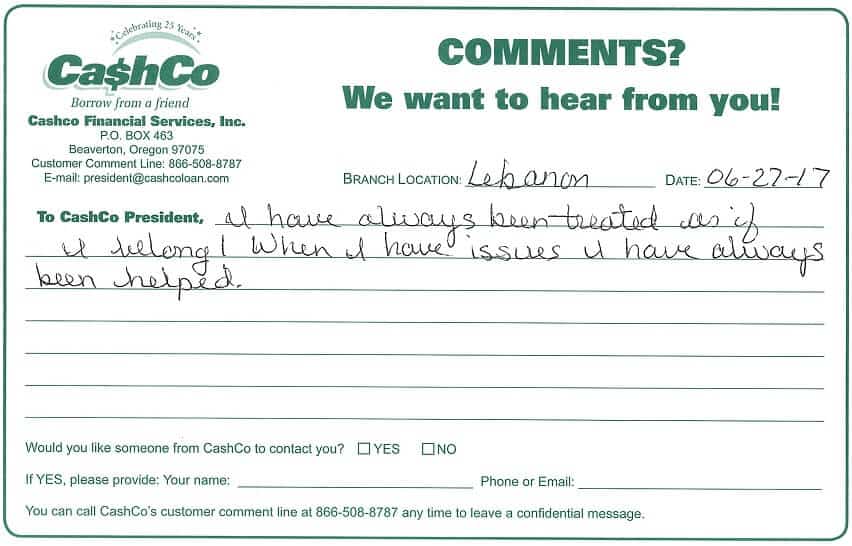 Celebrating 25 Years
Ca$hCo
Borrow from a friend
Cashco Financial Services, Inc.
P.O. BOX 463
Beaverton, Oregon 97075
Customer Comment Line: 866-508-8787
E-mail: president@cashcoloan.com
COMMENTS?
We want to hear from you!
BRANCH LOCATION: Lebanon DATE: 06-27-17
To CashCo President, I have always been treated as if
I belong! When I have issues I have always
been helped.
Would you like someone from CashCo to contact you? ☐ YES ☐ NO
If YES, please provide: Your name: Phone or Email:
You can call CashCo's customer comment line at 866-508-8787 any time to leave a confidential message.